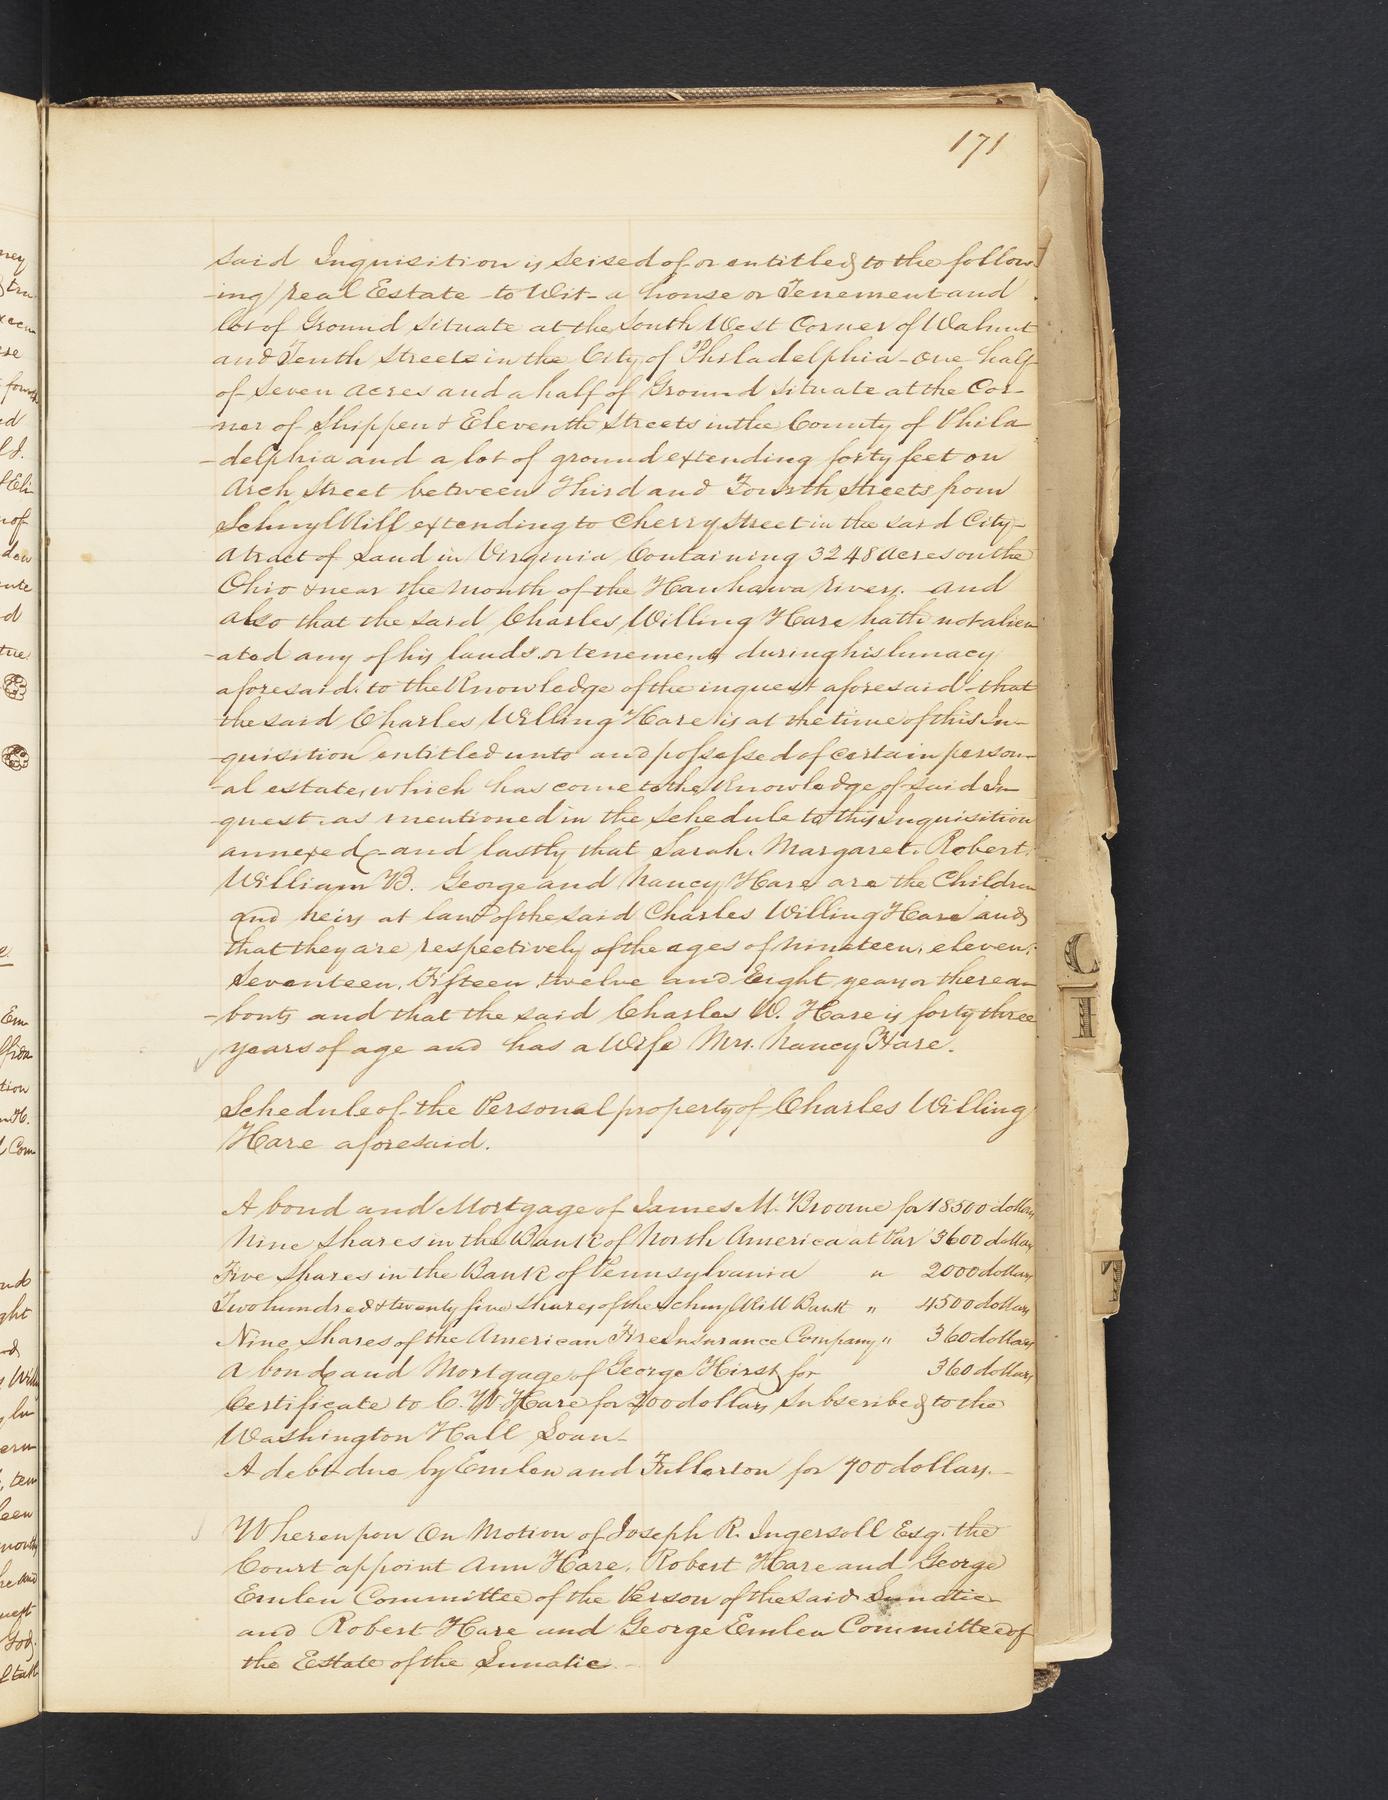 171
said Inquisition is seised of or entitled to the follow
-ing real Estate to Wit - a house or Tenement and
lot of Ground situate at the South West Corner of Walnut
and Tenth Streets in the City of Philadelphia - one half
of Seven acres and a half of Ground situate at the Cor-
ner of Shippen & Eleventh Streets in the County of Phila
-delphia and a lot of ground extending forty feet on
Arch Street between Third and Fourth Streets from
Schuylkill extending to Cherry Street in the said City -
a tract of Land in Virginia Containing 3248 acres on the
Ohio & near the Mouth of the Kanhawa rivers. and
also that the said Charles Willing Hare hath not alien
-ated any of his lands or tenements during his lunacy
aforesaid to the Knowledge of the inquest aforesaid - that
the said Charles Willing Hare is at the time of this In-
quisition entitled unto and possessed of certain person-
-al estate, which has come to the Knowledge of said In-
quest as mentioned in the Schedule to this Inquisition
annexed - and lastly that Sarah, Margaret, Robert,
William B. George and Nancy Hare are the Children
and heirs at law of the said Charles Willing Hare and
that they are respectively of the ages of nineteen, eleven,
Seventeen, Fifteen, twelve and Eight years or therea-
-bouts and that the said Charles W. Hare is forty three
years of age and has a Wife Mrs. Nancy Hare.
Schedule of the Personal property of Charles Willing
Hare aforesaid.
A bond and Mortgage of James M. Broome for 18500 dollars
Nine Shares in the Bank of North America at Par 3600 dollars
Five Shares in the Bank of Pennsylvania " 2000 dollars
Two hundred & twenty five Shares of the Schuylkill Bank " 4500 dollars
Nine Shares of the American Fire Insurance Company " 360 dollars
A bond and Mortgage of George Hirst for 360 dollars
Certificate to C. W. Hare for 200 dollars Subscribed to the
Washington Hall Loan -
A debt due by Emlen and Fullerton for 700 dollars. -
Whereupon On Motion of Joseph R. Ingersoll Esq. the
Court appoint Ann Hare, Robert Hare and George
Emlen Committee of the Person of the said Lunatic
and Robert Hare and George Emlen Committee of
the Estate of the Lunatic. -
C
I